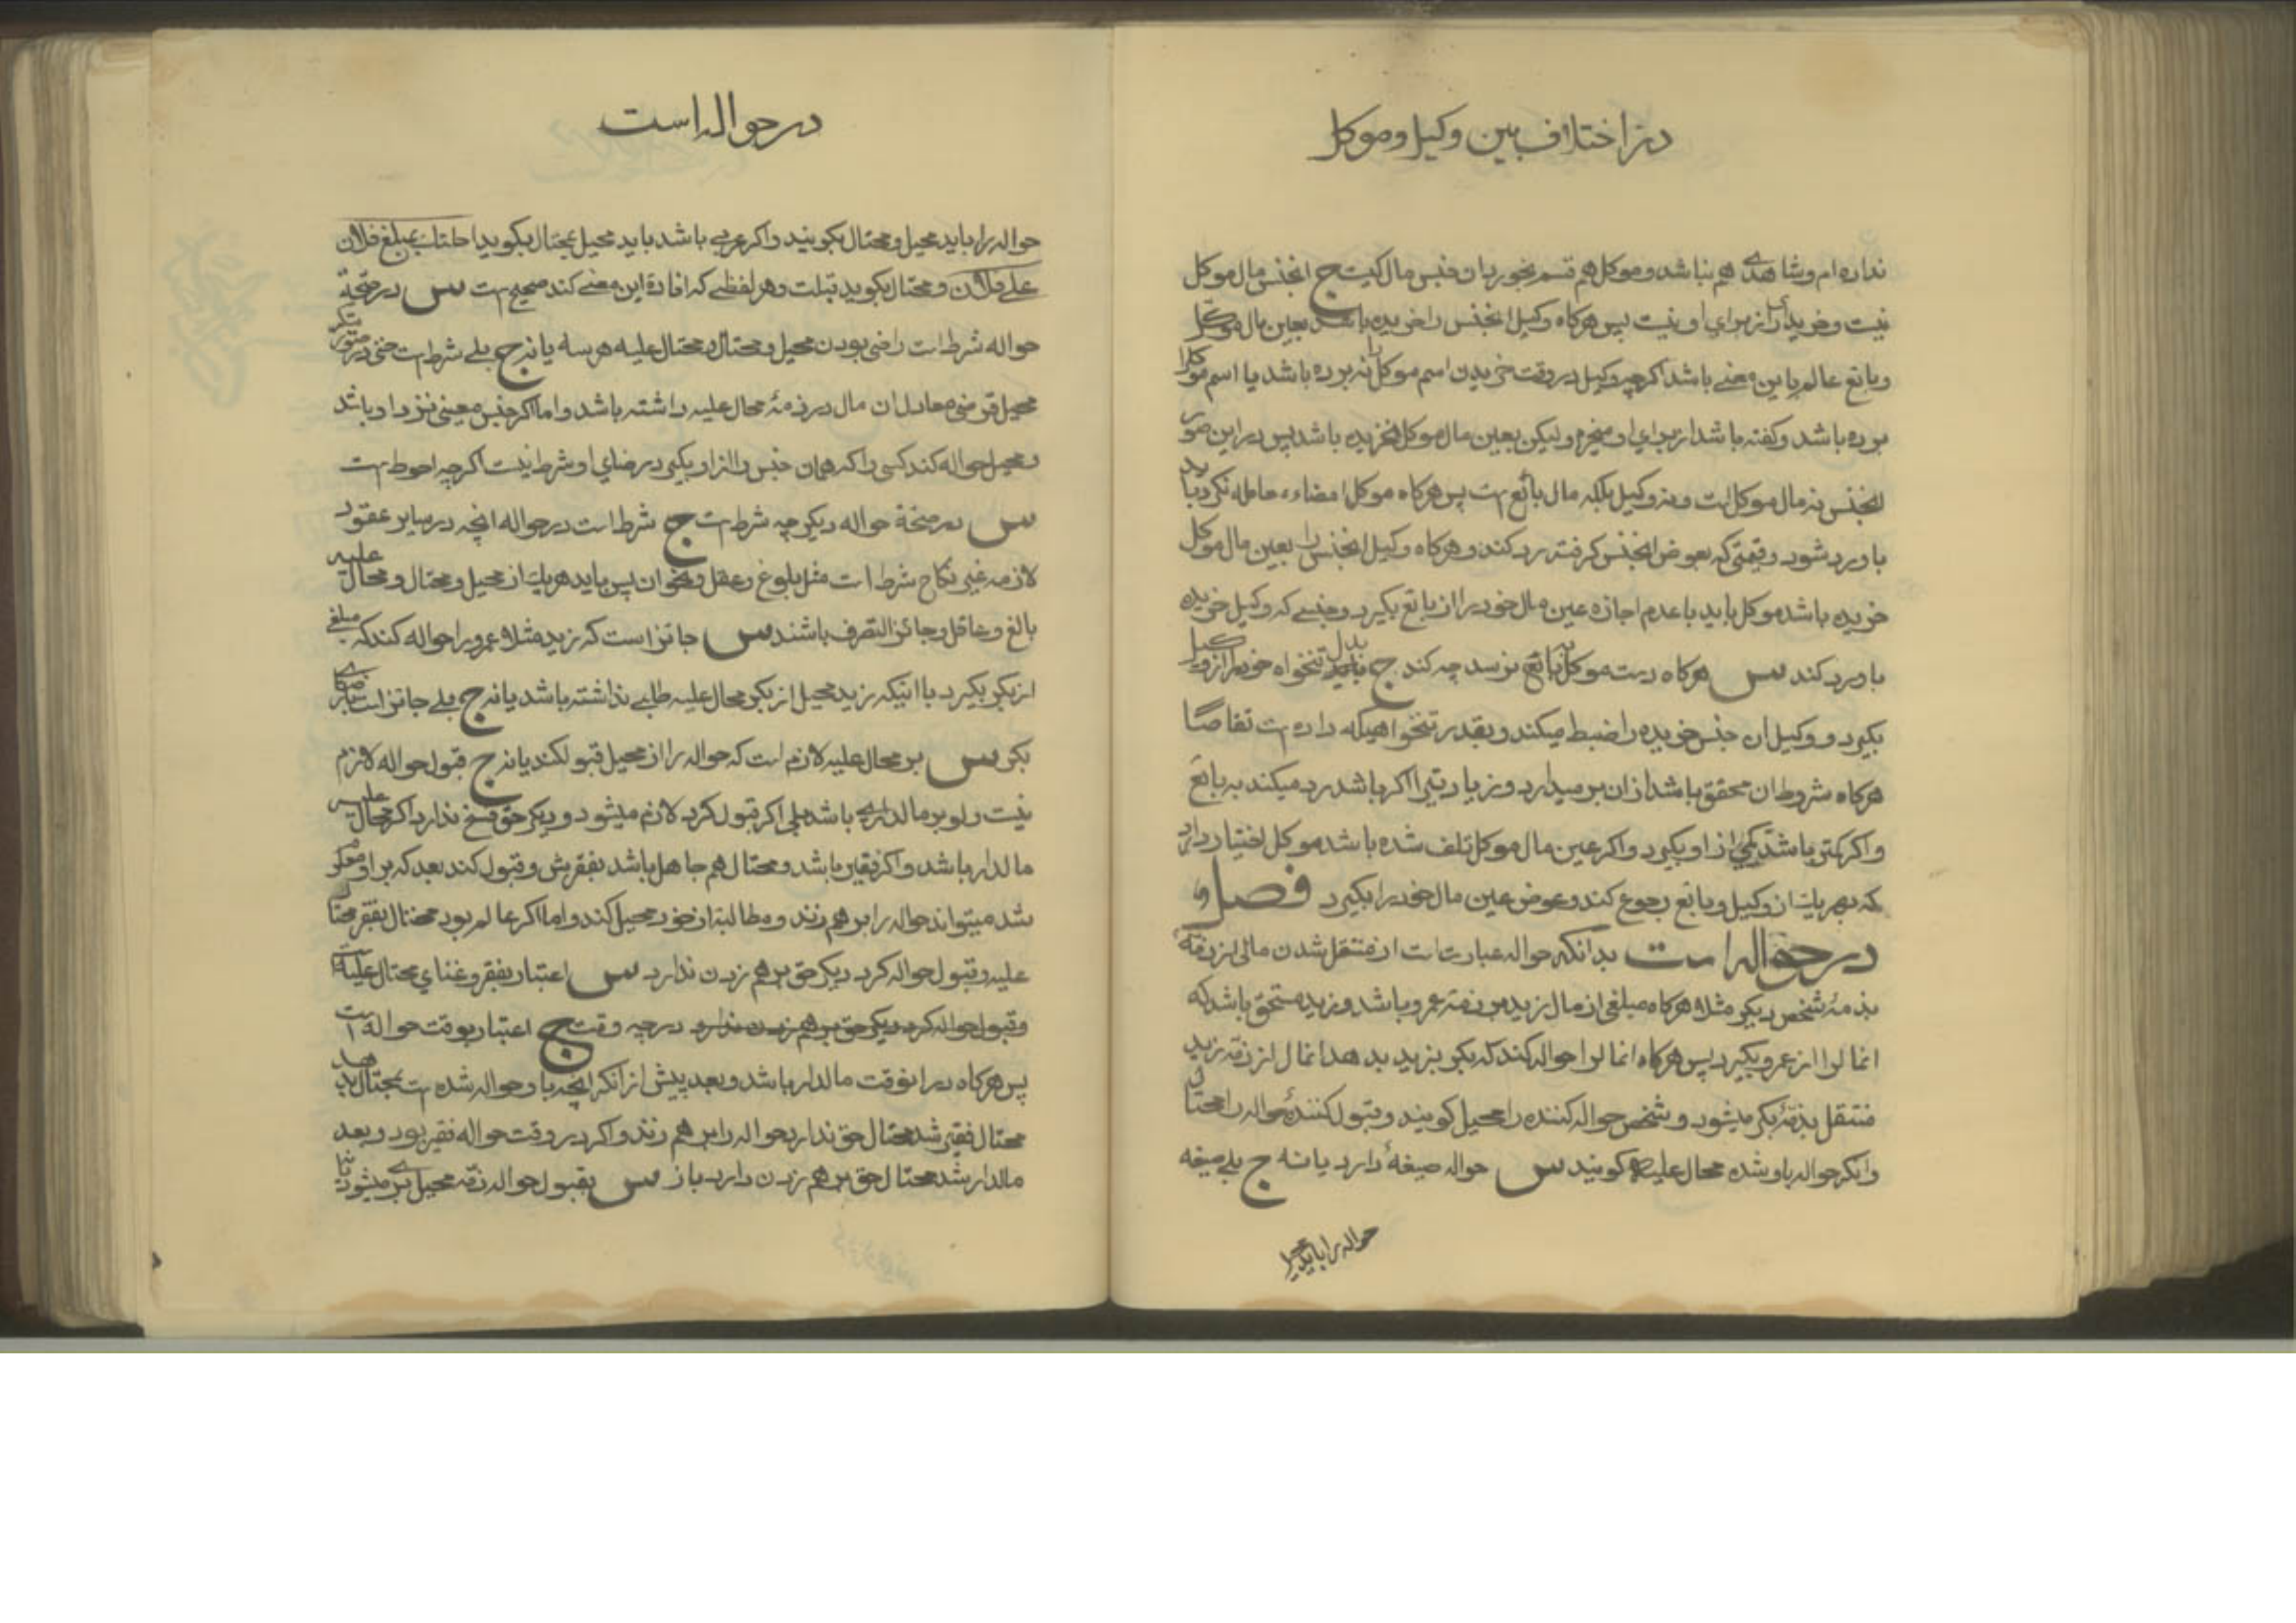 در اختلاف بین وکیل و موکل
نداده‌ام و شاهدی هم نباشد و موکل هم قسم بخورد بان جنس مال کیست ج انجنس مال موکل
نیست و خریداری از برای او نیست پس هرکاه وکیل انجنس را خریده باشد بعین مال موکل
و بایع عالم باین معنی باشد اکرچه وکیل در وقت خریدن اسم موکل را نبرده باشد یا اسم موکل را
برده باشد و کفته باشد از برای او میخرم ولیکن بعین مال موکل نخریده باشد پس در این صور
انجنس نه مال موکل است و نه وکیل بلکه مال بائع است پس هرکاه موکل امضاء معامله نکرد باید
باو رد شود و قیمتی که بعوض انجنس کرفته رد کند و هرکاه وکیل انجنس را بعین مال موکل
خریده باشد موکل باید با عدم اجازه عین مال خود را از بایع بکیرد و جنسی که وکیل خریده
باو رد کند س هرکاه دست موکل به بایع نرسد چه کند ج بدل تنخواه خود را از وکیل
بکیرد و وکیل ان جنس خریده را ضبط میکند و بقدر تنخواهیکه داده است تقاصا
هرکاه شروط ان محقق باشد از ان بر میدارد و زیادتی را اکر باشد رد میکند به بایع
و اکر کمتر باشد کمی از او بکیرد و اکر عین مال موکل تلف شده باشد موکل اختیار دارد
که بهر یک از وکیل و بایع رجوع کند و عوض عین مال خود را بکیرد فصل
در حواله است بدانکه حواله عبارت است از منتقل شدن مالی از ذمه
بذمهٔ شخص دیکر مثلا هرکاه مبلغی از مال زید در ذمه عمرو باشد و زید مستحق باشد که
انمال را از عمرو بکیرد پس هرکاه انمال را حواله کند که بکر بزید بدهد انمال از ذمه زید
منتقل بذمهٔ بکر میشود و شخص حواله کننده را محیل کویند و قبول کنندهٔ حواله را محتال
و انکه حواله باو شده محال علیه کویند س حواله صیغهٔ دارد یا نه ج بلی صیغه
حواله را باید محیل
در حواله است
حواله را باید محیل و محتال بکویند و اکر عربی باشد باید محیل بمحتال بکوید احلتک بمبلغ فلان
علی فلان و محتال بکوید قبلت و هر لفظی که افادۀ این معنی کند صحیح است س در صحة
حواله شرط است راضی بودن محیل و محتال و محتال علیه هر سه یا نه ج بلی شرط است حتی در صورتیکه
محیل قرضی معادل ان مال در ذمهٔ محال علیه داشته باشد و اما اکر جنس معینی نزد او باشد
و محیل حواله کند کسی را که همان جنس را از او بکیرد رضای او شرط نیست اکرچه احوط است
س در صحة حواله دیکر چه شرط است ج شرط است در حواله انچه در سایر عقود
لازمه غیر نکاح شرط است مثل بلوغ و عقل و نحو ان پس باید هر یک از محیل و محتال و محال علیه
بالغ و عاقل و جائز التصرف باشند س جائز است که زید مثلا عمرو را حواله کند که مبلغی
از بکر بکیرد با اینکه زید محیل از بکر محال علیه طلبی نداشته باشد یا نه ج بلی جائز است برضای
بکر س بر محال علیه لازم است که حواله را از محیل قبول کند یا نه ج قبول حواله لازم
نیست ولو بر مالداری باشد بلی اکر قبول کرد لازم میشود و دیکر حق فسخ ندارد اکر محال علیه
مالدار باشد و اکر فقیر باشد و محتال هم جاهل باشد بفقرش و قبول کند بعد که بر او معلوم
شد میتواند حواله را بر هم زند و مطالبه از خود محیل کند و اما اکر عالم بود محتال بفقر محتال
علیه و قبول حواله کرد دیکر حق بر هم زدن ندارد س اعتبار بفقر و غنای محتال علیه
و قبول حواله کرد دیکر حق بر هم زدن ندارد در چه وقت ج اعتبار بوقت حواله است
پس هرکاه در انوقت مالدار باشد و بعد پیش از انکه انچه باو حواله شده است بمحتال بدهد
محتال فقیر شد محتال حق ندارد حواله را بر هم زند و اکر در وقت حواله فقیر بود و بعد
مالدار شد محتال حق بر هم زدن دارد باز س بقبول حواله ذمه محیل بری میشود یا